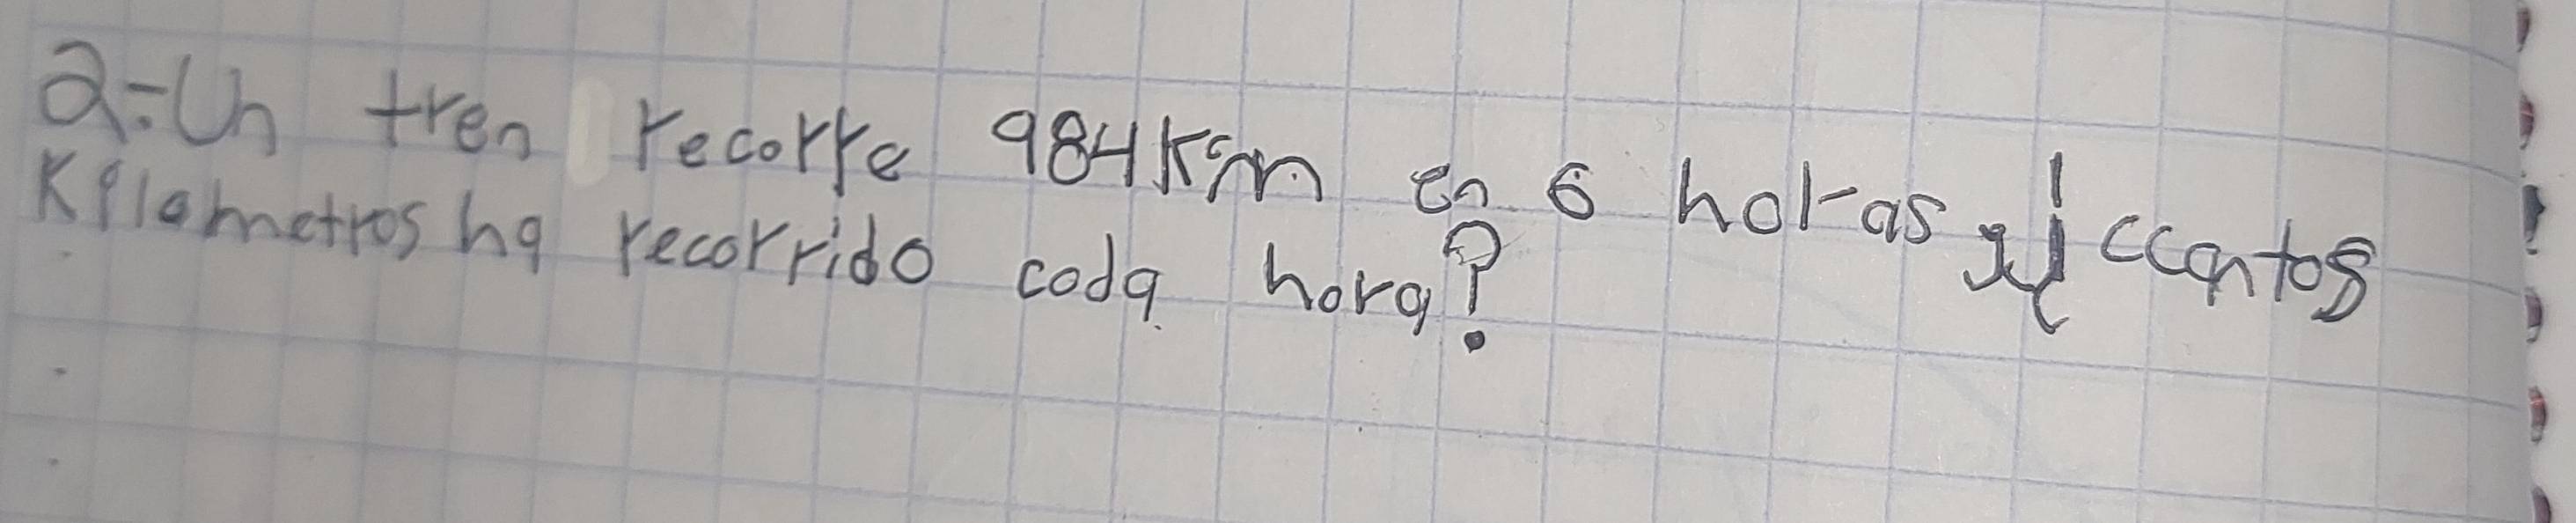 2=Un tren recorre 984Km en 6 horas y ¿cuantos
Kilometros ha recorrido coda hora?